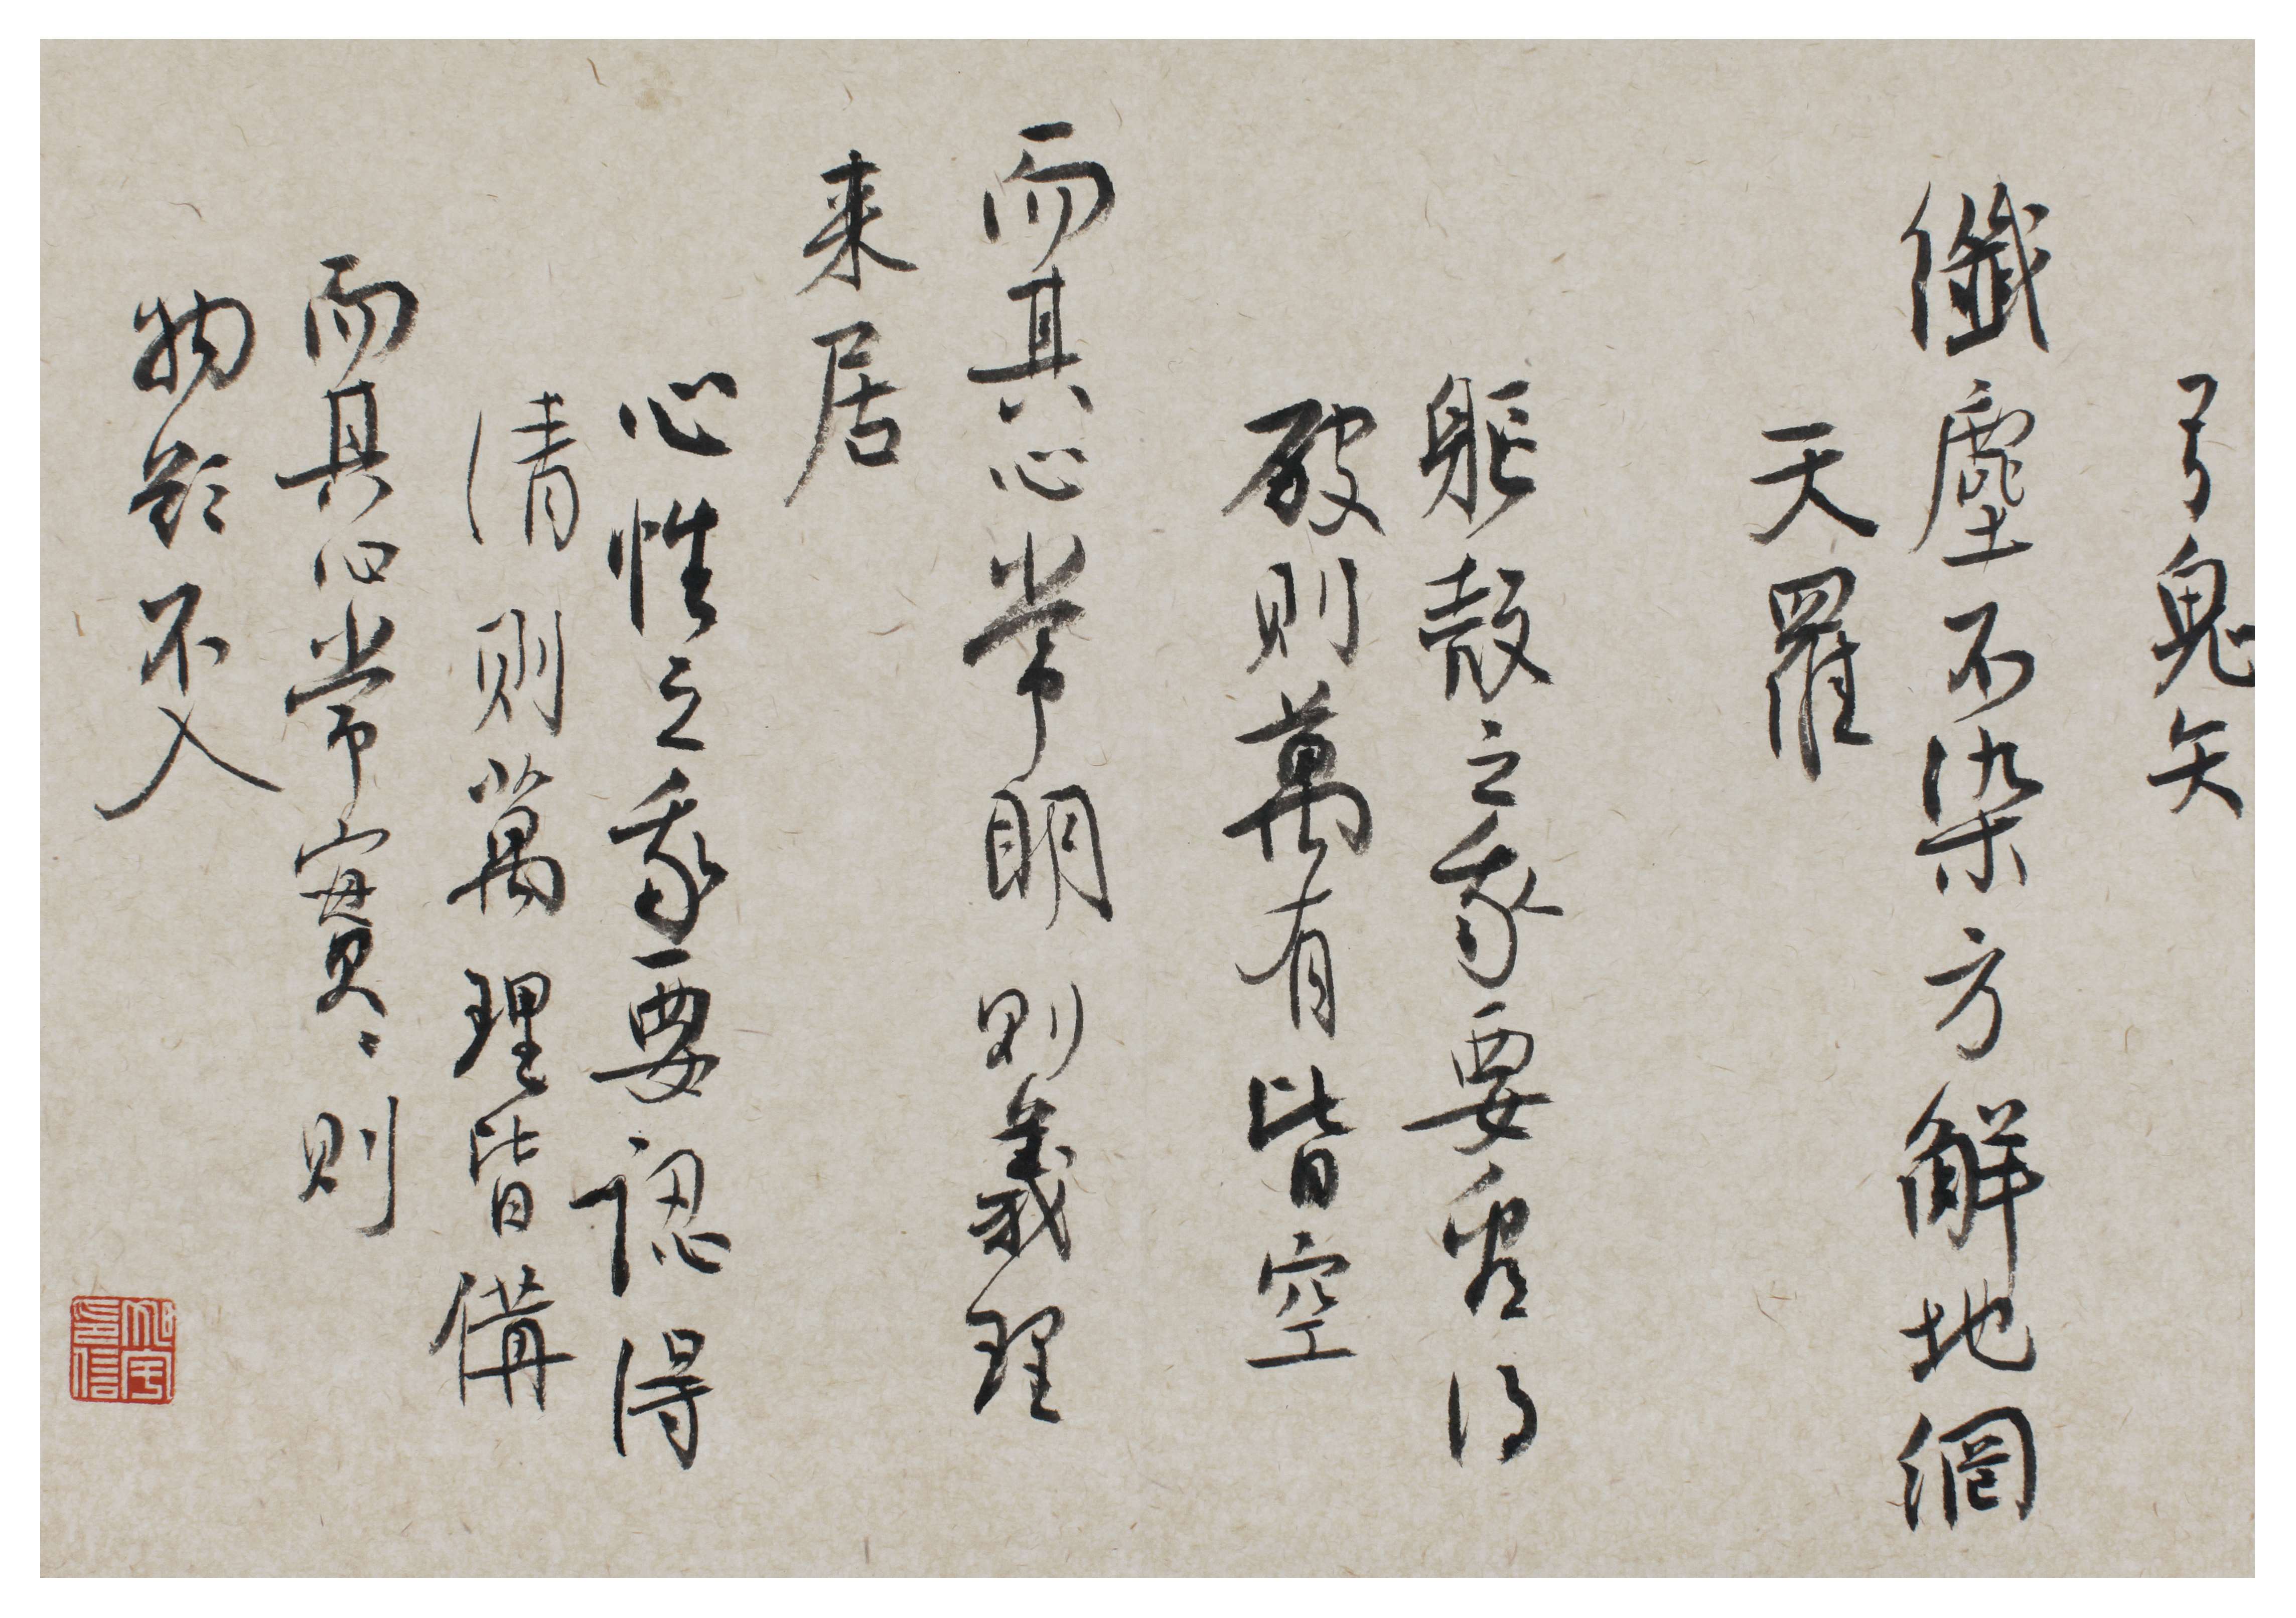 弓鬼矢
纖塵不染方解地網
天羅
軀殼之我要看得
破則萬有皆空
而其心常明則義理
来居
心性之我要認得
清則萬理皆備
而其心常實〻則
物欲不入